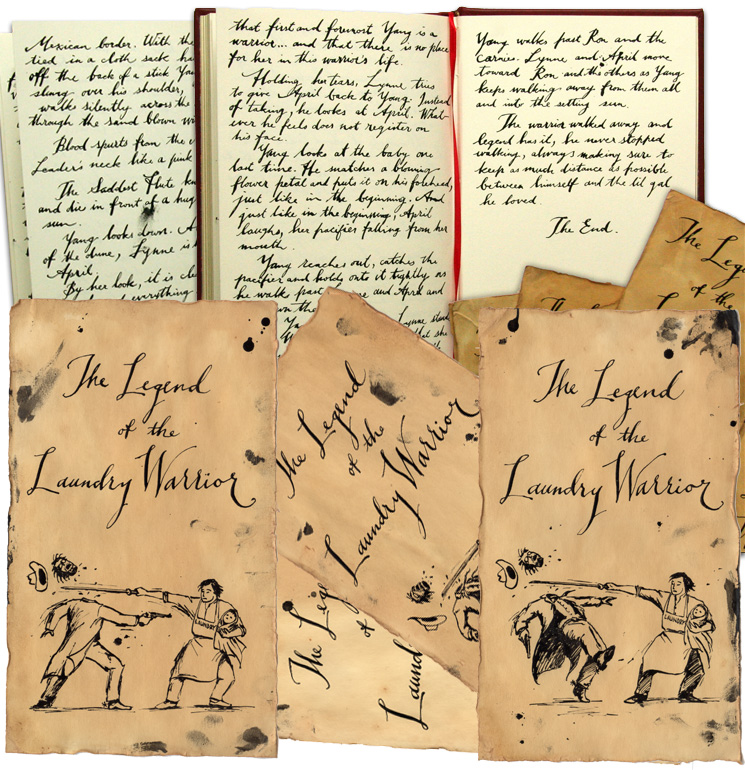 Mexican border. With the
tied in a cloth sack ha
off the back of a stick Ya
slung over his shoulder,
walks silently across the
through the sand blown w
Blood spurts from the
Leader's neck like a pink
The Saddest Flute
and die in front of a hug
sun.
Yang looks down. A
of the dune, Lynne is
April.
By her look, it is cle
everything
that first and foremost Yang is a
warrior... and that there is no place
for her in this warrior's life.
Holding her tears, Lynne tries
to give April back to Yang. Instead
of taking, he looks at April. What-
ever he feels does not register on
his face.
Yang looks at the baby one
last time. He snatches a blowing
flower petal and puts it on his forehead,
just like in the beginning. And
just like in the beginning, April
laughs, her pacifier falling from her
mouth.
Yang reaches out, catches the
pacifier and holds onto it tightly as
he walk past and April and
the
Lynne
she
Yang walks past Ron and the
carnies. Lynne and April move
toward Ron and the others as Yang
keeps walking away from them all
and into the setting sun.
The warrior walked away and
legend has it, he never stopped
walking, always making sure to
keep as much distance as possible
between himself and the lil gal
he loved.
The End.
The Leg
of the
L
The Legend
of the
Laundry Warrior
LAUNDRY
The Legend
of the
Laundry Warrior
The Lege
of
Laund
The Legend
of the
Laundry Warrior
LAUNDRY